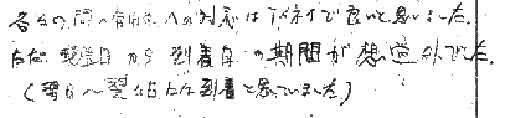 の対応は下さいで良いと思いました。
ただ発送日から到着日の期間が想定外でした。
(翌日〜翌々日には到着と思っていました)